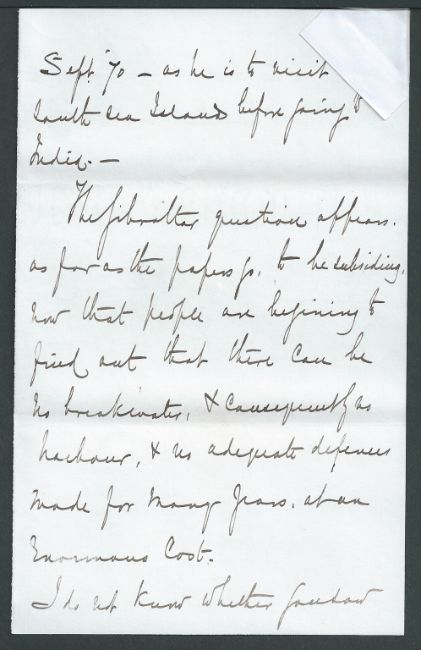 Sept. 70 – as he is to visit
South Sea Islands before going to
India. –
The Gibraltar question appears.
as far as the papers go, to be subsiding,
now that people are begining to
find out that there can be
no breakwater, & consequently no
harbour, & no adequate defences
made for many years, at an
Enormous Cost.
I do not know whether you saw